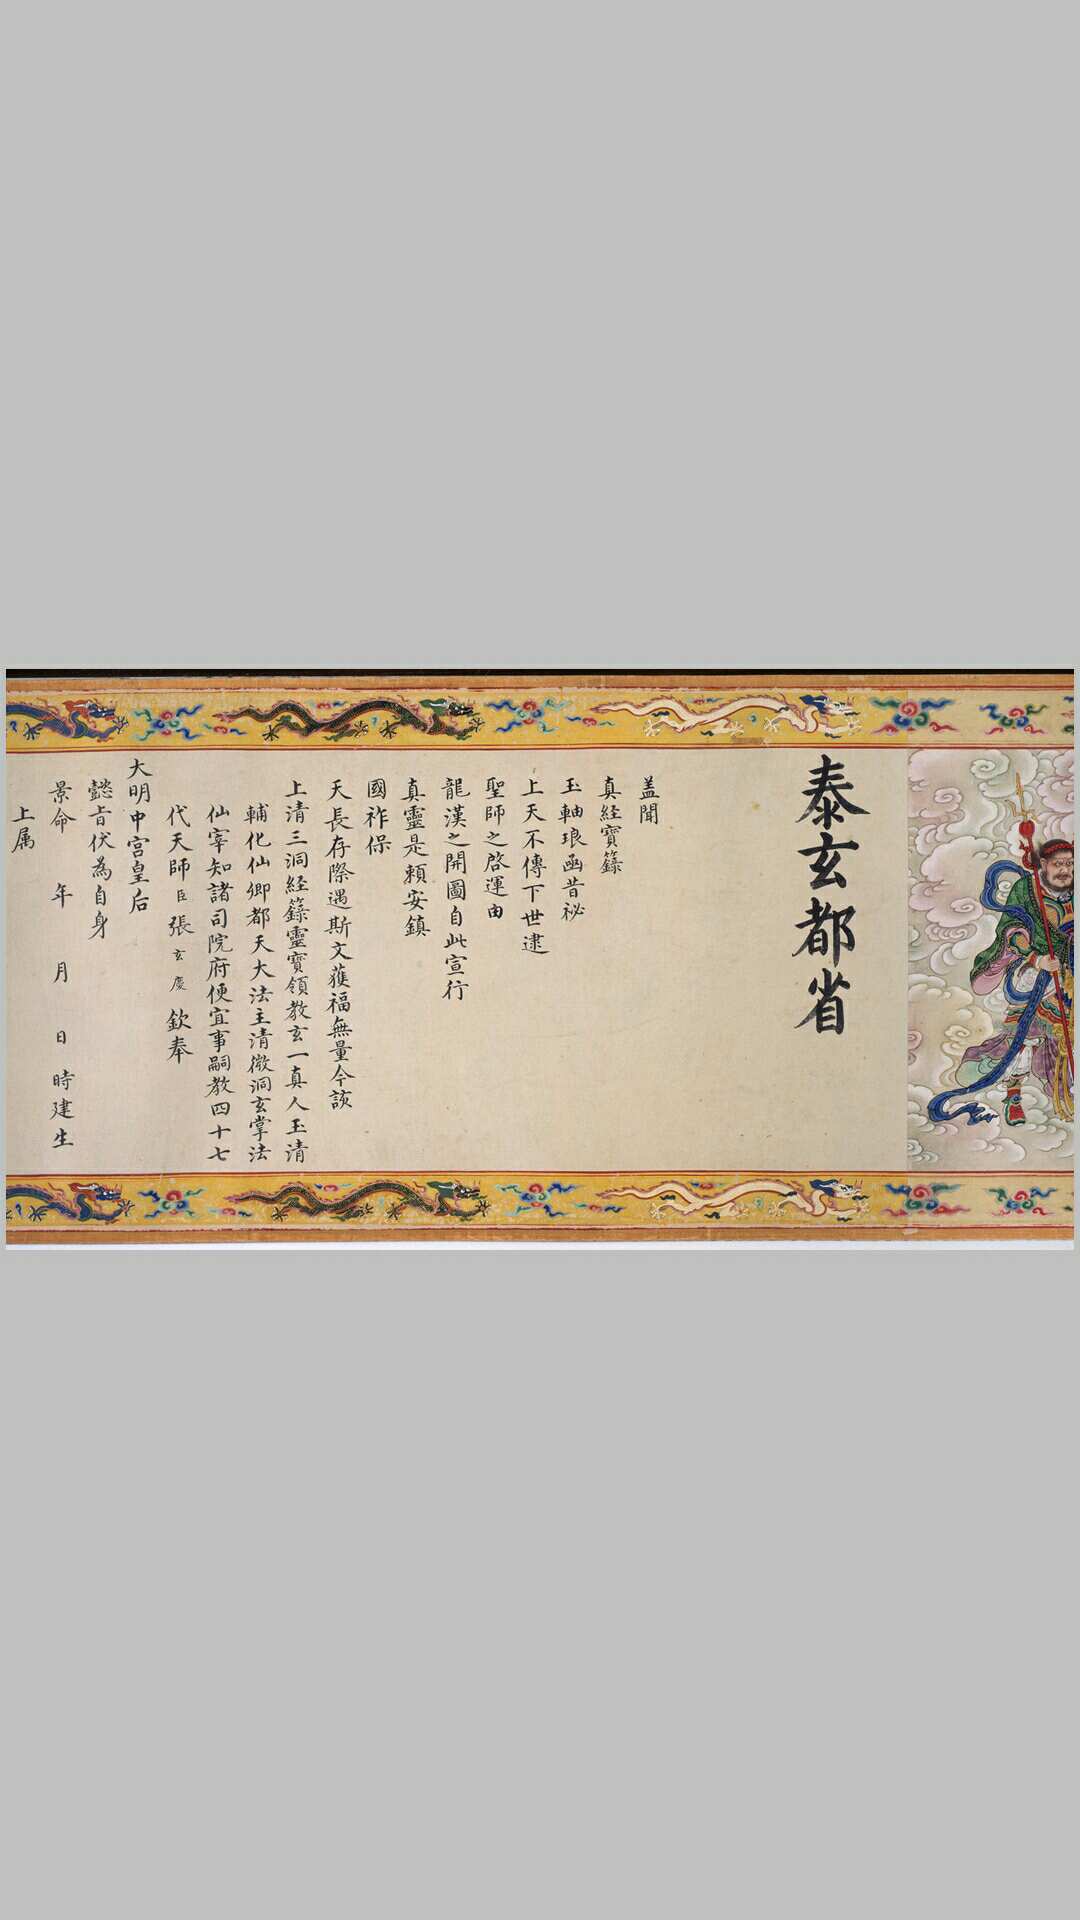 泰玄都省
盖聞
真経寳籙
玉軸琅函昔祕
上天不傳下世逮
聖師之啓運由
龍漢之開圖自此宣行
真靈是頼安鎮
國祚保
天長存際遇斯文獲福無量今該
上清三洞経籙靈寳領教玄一真人玉清
輔化仙卿都天大法主清微洞玄掌法
仙宰知諸司院府便宜事嗣教四十七
代天師臣張玄慶欽奉
大明中宫皇后
懿旨伏為自身
景命年月日時建生
上属